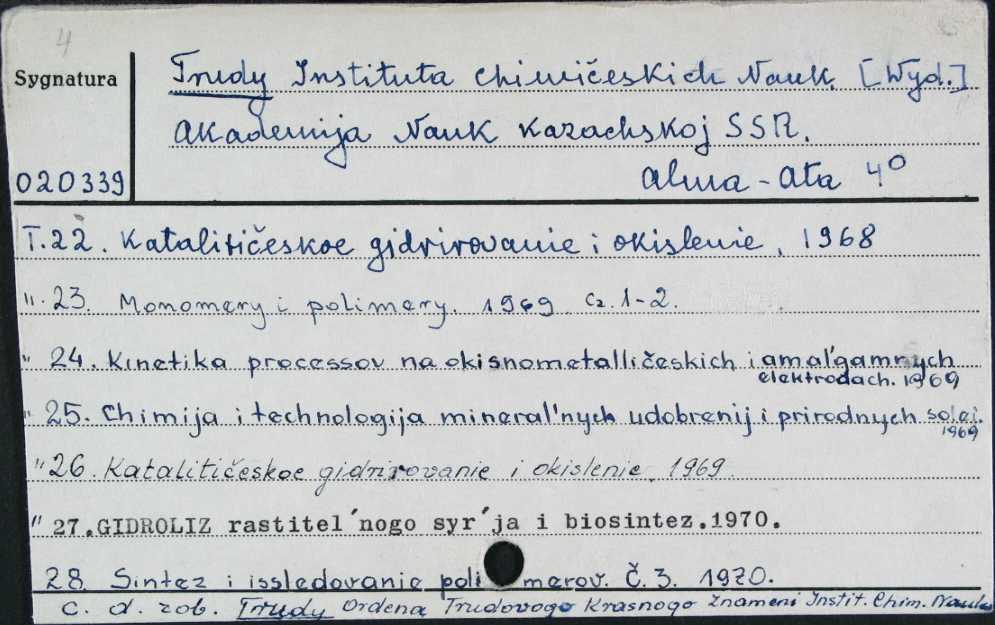 4
Sygnatura
Trudy Instituta Chimičeskich Nauk. [Wyd.]
Akademija Nauk Kazachskoj SSR.
020339
Alma-Ata 4°
T.22. Katalitičeskoe gidrirovanie i okislenie, 1968
".23. Monomery i polimery. 1969 Cz. 1-2.
" 24. Kinetika processov na okisnometalličeskich i amal'gamnych
elektrodach. 1969
" 25. Chimija i technologija mineral'nych udobrenij i prirodnych solej.
1969
" 26. Katalitičeskoe gidrirovanie i okislenie, 1969
" 27.GIDROLIZ rastitel´nogo syr´ja i biosintez.1970.
28. Sintez i issledovanie polimerov. Č. 3. 1970.
C. d. rob. Trudy Ordena Trudovogo Krasnogo Znameni Instit. Chim. Nauk